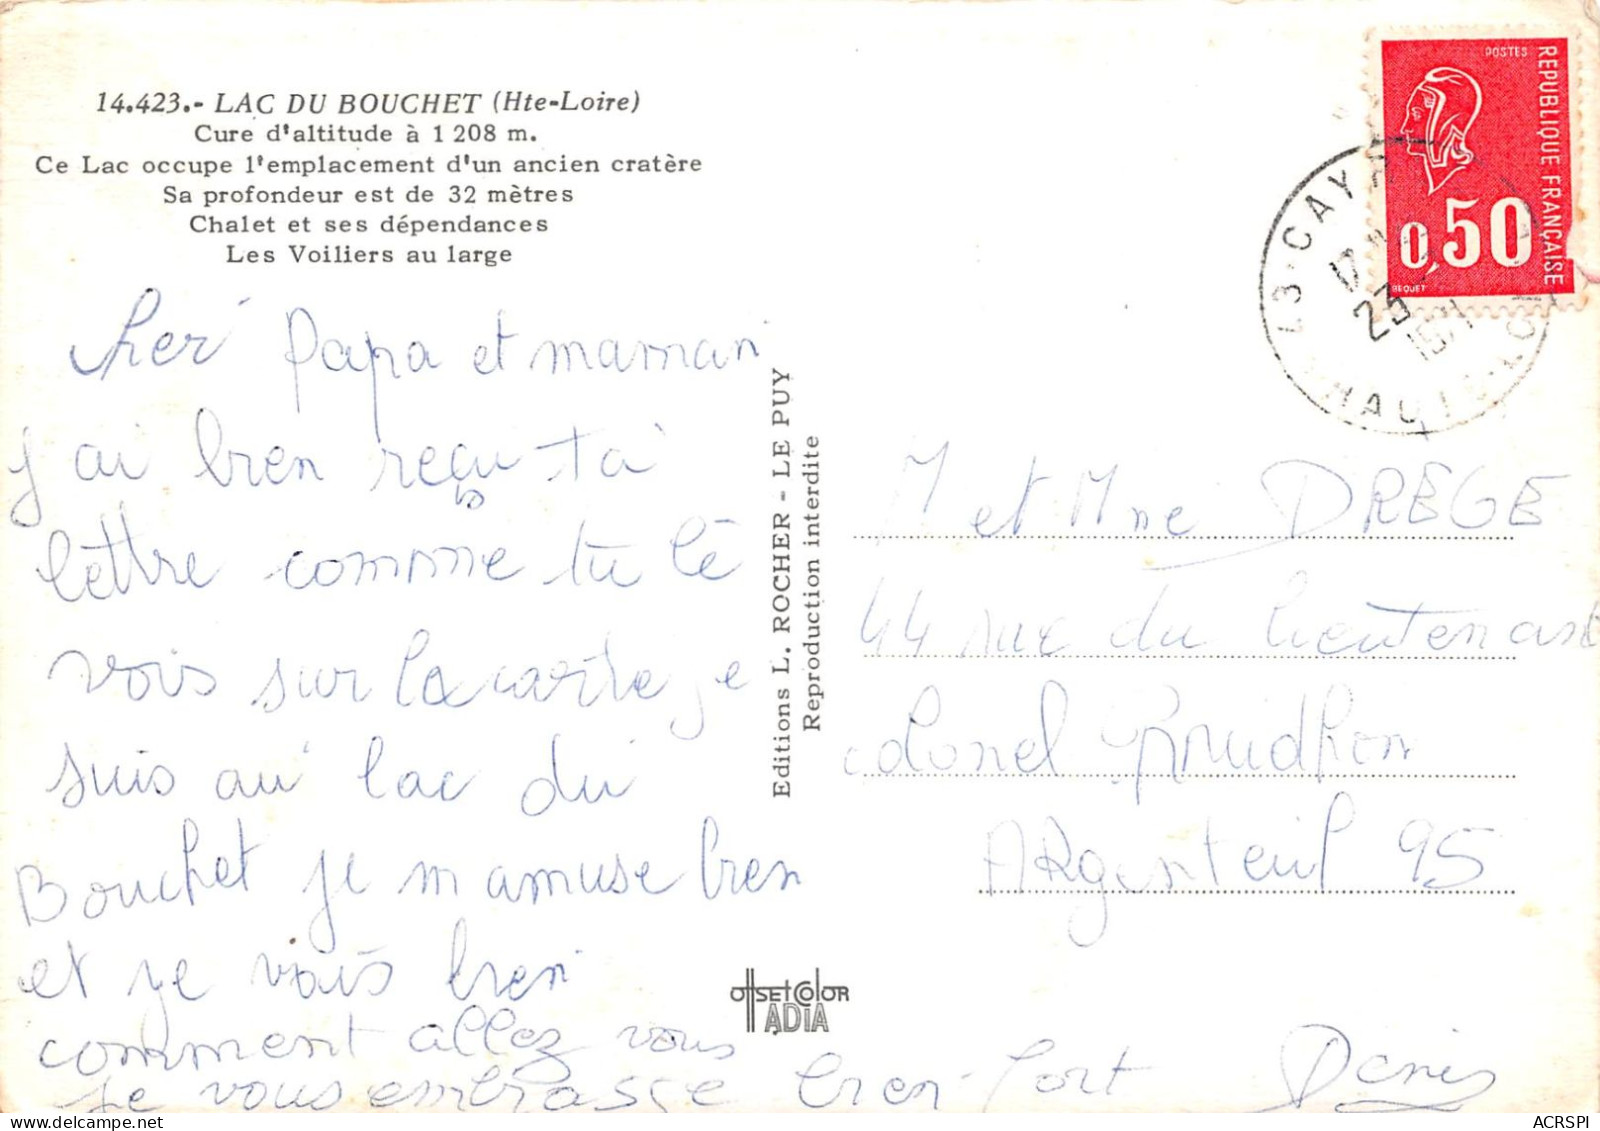 14.423.- LAC DU BOUCHET (Hte-Loire)
Cure d'altitude à 1 208 m.
Ce Lac occupe l'emplacement d'un ancien cratère
Sa profondeur est de 32 mètres
Chalet et ses dépendances
Les Voiliers au large
cher Papa et maman
j'ai bien reçu ta
lettre comme tu lê
vois sur la carte je
suis au lac du
Bouchet je m amuse bien
et je vais bien
comment allez vous
je vous embrasse bien fort Denis
Editions L. ROCHER - LE PUY
Reproduction interdite
offsetcolor
IADIA
POSTES
REPUBLIQUE FRANÇAISE
0,50
BEQUET
43-CAYR
23
HAUTE-LOI
M et Mme DREGE
44 rue du lieutenant
colonel Prudhon
ARgenteuil 95
ACRSPI